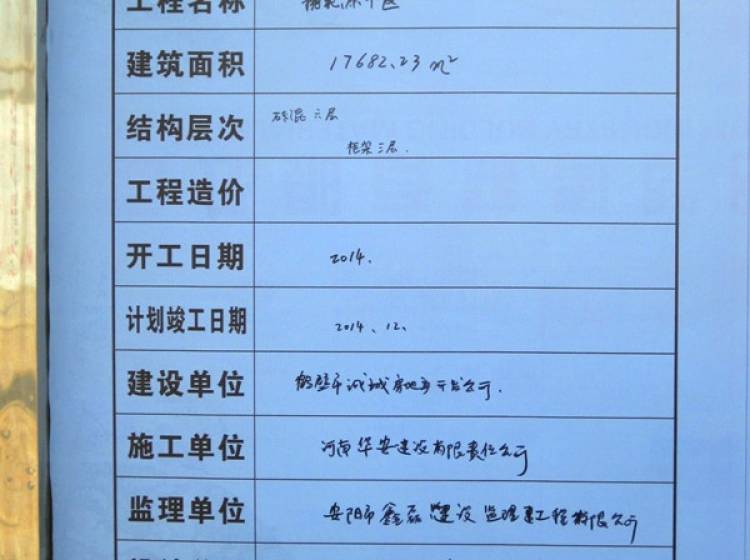 工程名称
建筑面积 17682.23 m²
结构层次 砖混六层
框架三层.
工程造价
开工日期 2014.
计划竣工日期 2014、12、
建设单位 鹤壁市诚城房地产开发公司.
施工单位 河南华安建设有限责任公司
监理单位 安阳市鑫磊建设监理建工程有限公司